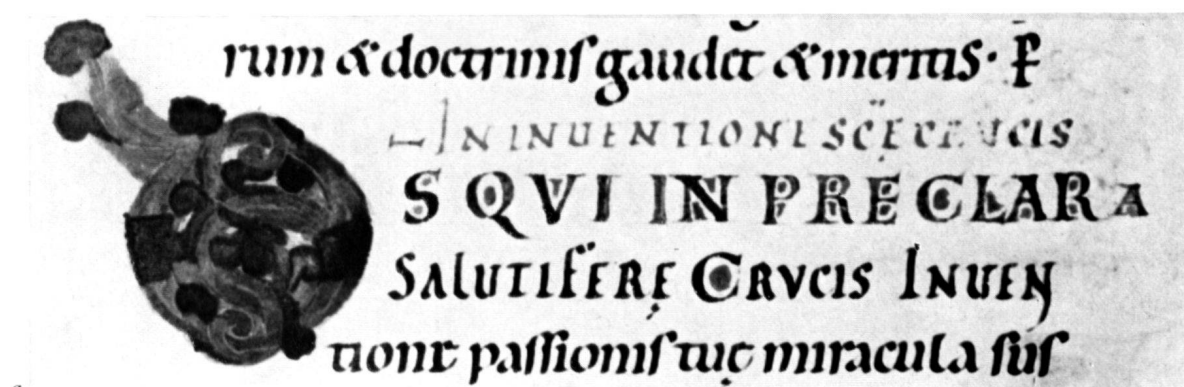 rum & doctrinis gaudet̄ & meritis · P̄
IN INUENTIONE SC̄Ę CRUCIS
DS QVI IN PRECLARA
SALUTIFERĘ CRVCIS INUEN
tione passionis tuę miracula sus